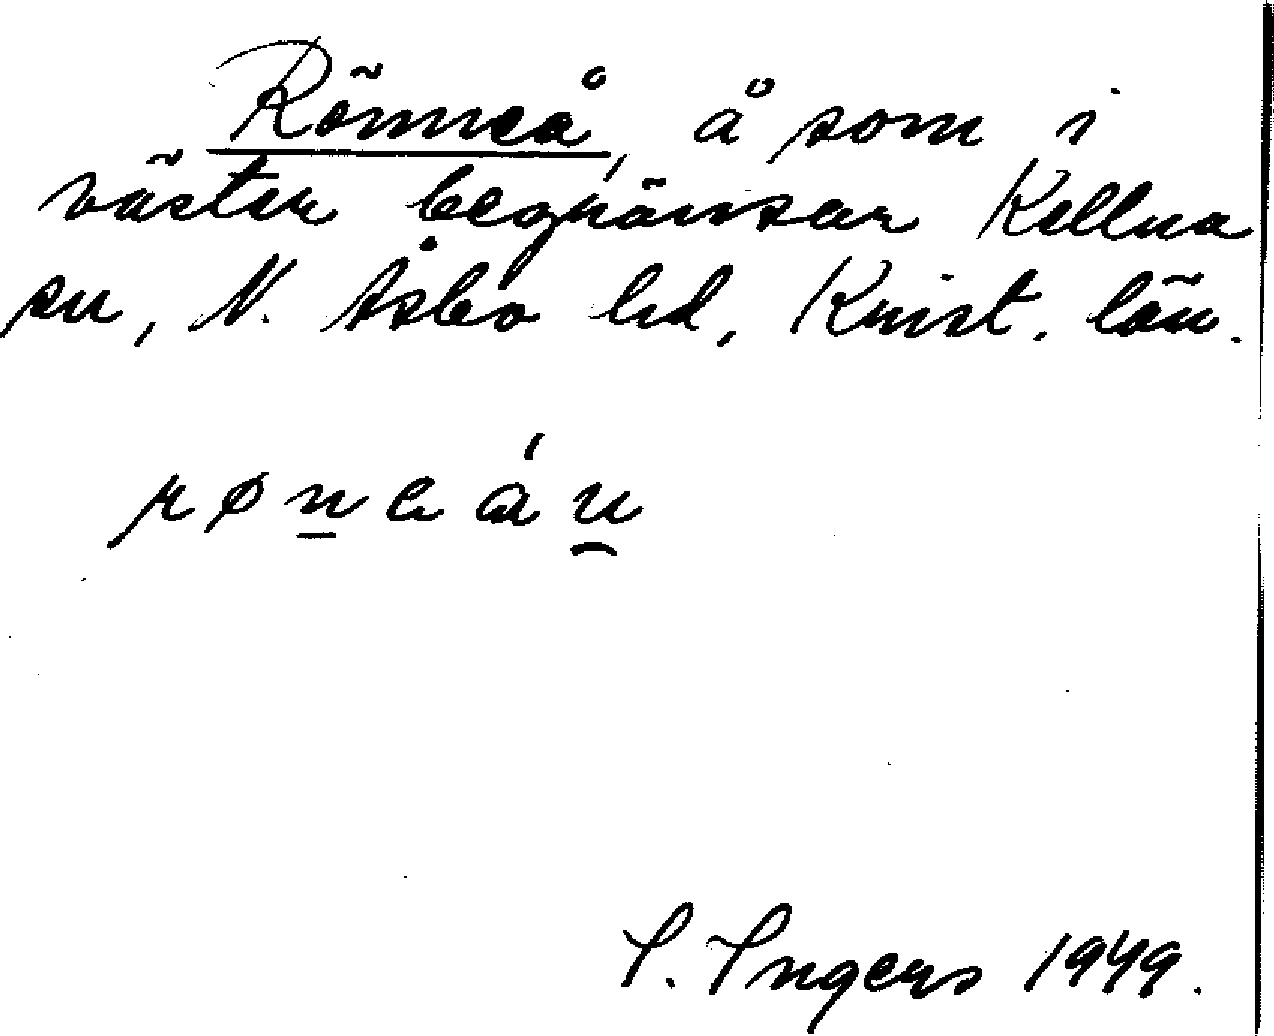 Rönneå, å som i
väster begränsar Källna
sn, N. Åsbo hd, Krist. län.
røneáu
I. Ingers 1949.